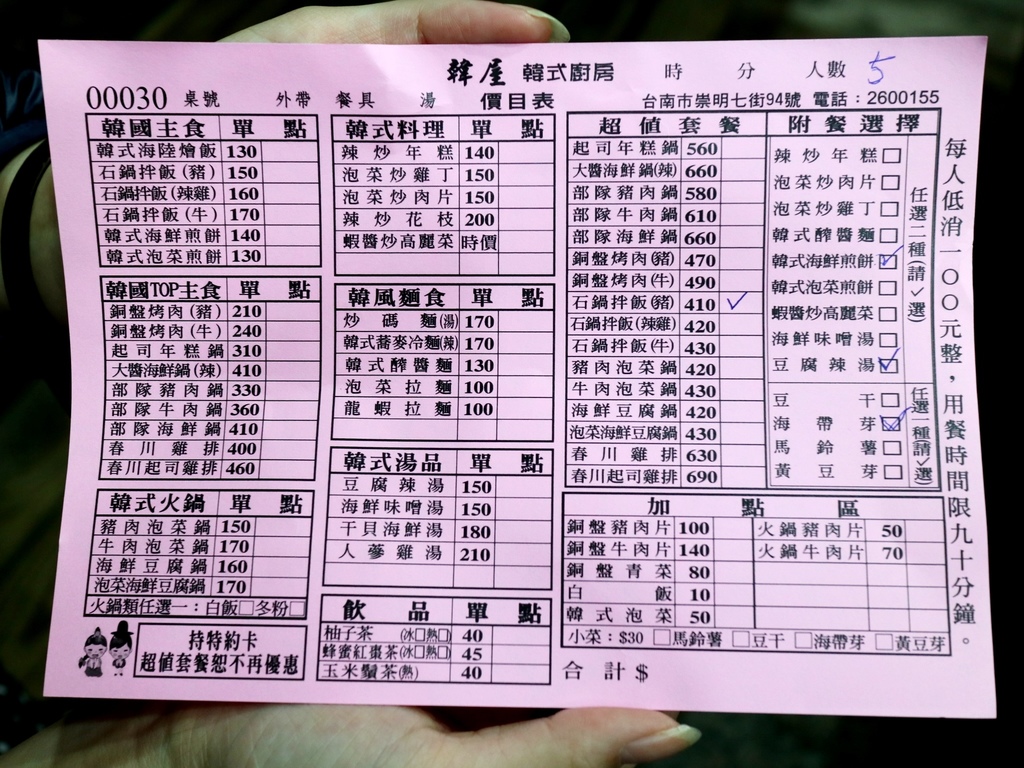 韓屋 韓式廚房 時 分 人數 5
00030 桌號 外帶 餐具 湯 價目表 台南市崇明七街94號 電話：2600155
韓國主食 單 點
韓式海陸燴飯 130
石鍋拌飯(豬) 150
石鍋拌飯(辣雞) 160
石鍋拌飯(牛) 170
韓式海鮮煎餅 140
韓式泡菜煎餅 130
韓國TOP主食 單 點
銅盤烤肉(豬) 210
銅盤烤肉(牛) 240
起司年糕鍋 310
大醬海鮮鍋(辣) 410
部隊豬肉鍋 330
部隊牛肉鍋 360
部隊海鮮鍋 410
春川雞排 400
春川起司雞排 460
韓式火鍋 單 點
豬肉泡菜鍋 150
牛肉泡菜鍋 170
海鮮豆腐鍋 160
泡菜海鮮豆腐鍋 170
火鍋類任選一：白飯□冬粉□
持特約卡
超值套餐恕不再優惠
韓式料理 單 點
辣炒年糕 140
泡菜炒雞丁 150
泡菜炒肉片 150
辣炒花枝 200
蝦醬炒高麗菜 時價
韓風麵食 單 點
炒碼麵(湯) 170
韓式蕎麥冷麵(辣) 170
韓式醡醬麵 130
泡菜拉麵 100
龍蝦拉麵 100
韓式湯品 單 點
豆腐辣湯 150
海鮮味噌湯 150
干貝海鮮湯 180
人蔘雞湯 210
飲品 單 點
柚子茶 (冰□熱□) 40
蜂蜜紅棗茶(冰□熱□) 45
玉米鬚茶(熱) 40
超值套餐
起司年糕鍋 560
大醬海鮮鍋(辣) 660
部隊豬肉鍋 580
部隊牛肉鍋 610
部隊海鮮鍋 660
銅盤烤肉(豬) 470
銅盤烤肉(牛) 490
石鍋拌飯(豬) 410 ✓
石鍋拌飯(辣雞) 420
石鍋拌飯(牛) 430
豬肉泡菜鍋 420
牛肉泡菜鍋 430
海鮮豆腐鍋 420
泡菜海鮮豆腐鍋 430
春川雞排 630
春川起司雞排 690
附餐選擇
辣炒年糕□
泡菜炒肉片□
泡菜炒雞丁□
韓式醡醬麵□
韓式海鮮煎餅☑
韓式泡菜煎餅□
蝦醬炒高麗菜□
海鮮味噌湯□
豆腐辣湯☑
任選二種(請✓選)
豆干□
海帶芽☑
馬鈴薯□
黃豆芽□
任選一種(請✓選)
加點區
銅盤豬肉片 100 火鍋豬肉片 50
銅盤牛肉片 140 火鍋牛肉片 70
銅盤青菜 80
白飯 10
韓式泡菜 50
小菜：$30 □馬鈴薯 □豆干 □海帶芽 □黃豆芽
合計$
每人低消一００元整，用餐時間限九十分鐘。